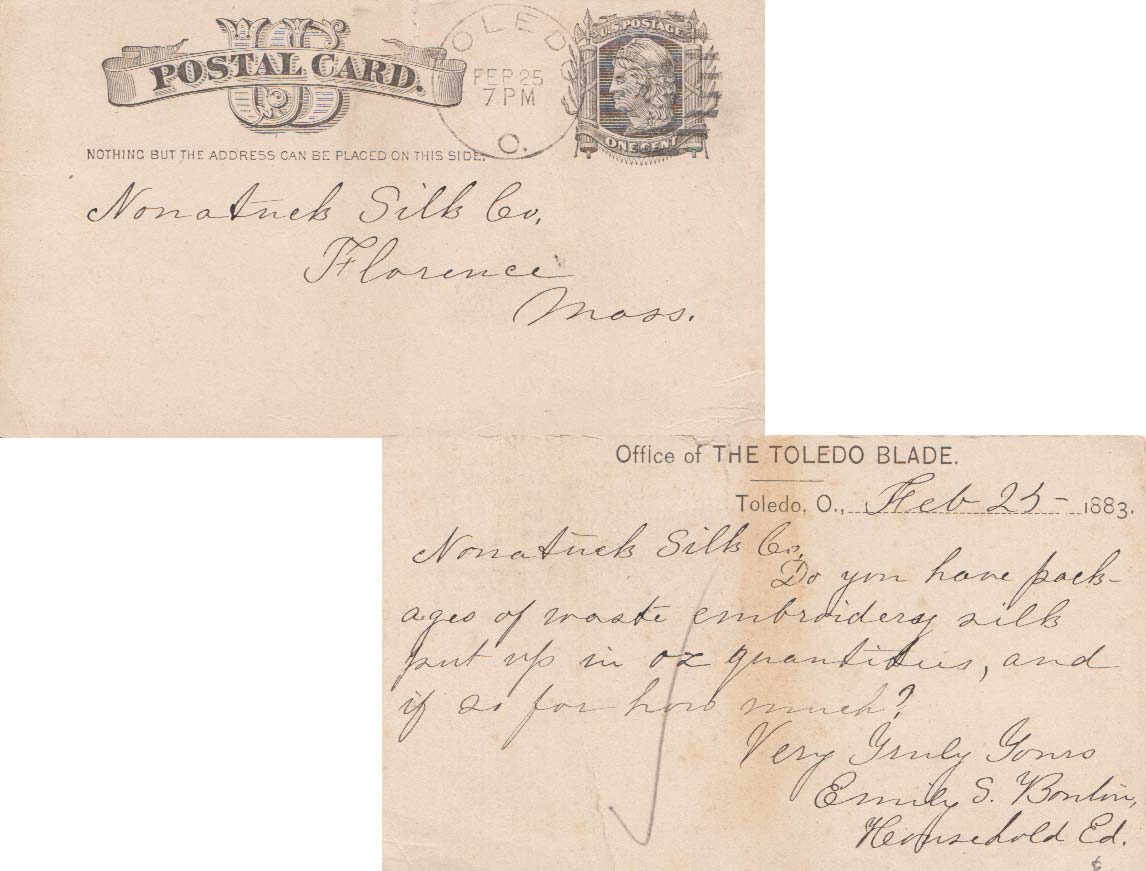 US
POSTAL CARD.
TOLEDO
FEB 25
7 PM
O.
U.S. POSTAGE
ONE CENT
NOTHING BUT THE ADDRESS CAN BE PLACED ON THIS SIDE.
Nonatuck Silk Co,
Florence
Mass.
Office of THE TOLEDO BLADE.
Toledo, O., Feb 25- 1883.
Nonatuck Silk Co,
Do you have pack-
ages of waste embroidery silk
put up in oz quantities, and
if so for how much?
Very Truly Yours
Emily S. Bouton,
Household Ed.